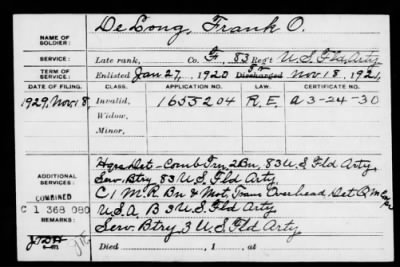 De Long, Frank O.
NAME OF SOLDIER:
SERVICE: Late rank, Co. F, 83 Reg't U.S. Fld. Arty
TERM OF SERVICE: Enlisted Jan 27, 1920 Discharged Nov. 18, 1921,
DATE OF FILING. CLASS. APPLICATION NO. LAW. CERTIFICATE NO.
1929, Nov. 8, Invalid, 1655204 R.E. A 3-24-30
Widow,
Minor,
ADDITIONAL SERVICES:
Hqrs Det - Comb Trn 2 Bn, 83 U.S. Fld Arty,
Serv. Btry 83 U.S. Fld Arty
C/ M.R. Bn & Mot. Trans Overhead, Det. Q.M. Corps
COMBINED
C 1 368 080
U.S.A. B 3 U.S. Fld Arty
REMARKS:
Serv. Btry 3 U.S. Fld Arty
Died , 1 , at